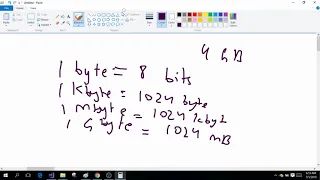 4 GB
1 byte = 8 bits
1 Kbyte = 1024 byte
1 mbyte = 1024 kbyt
1 G byte = 1024 mB